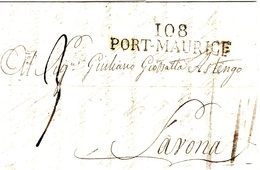 108
PORT-MAURICE
Giuliano Gio Batta Astengo
Savona